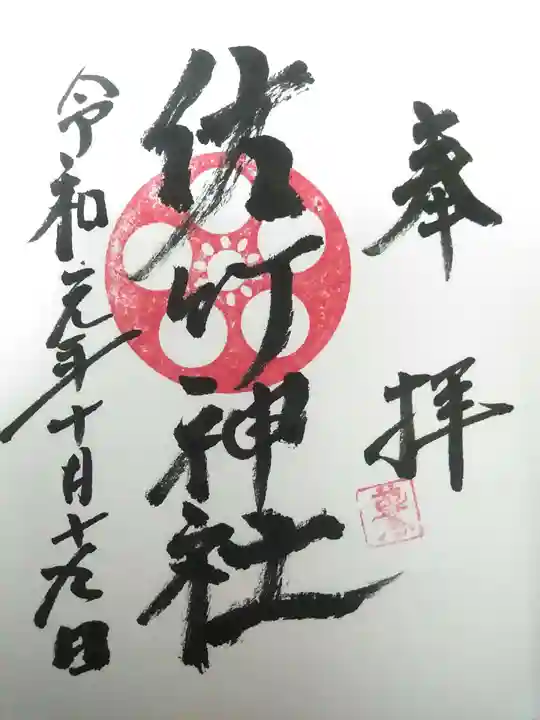 奉拝
佐竹神社
令和元年十月十九日